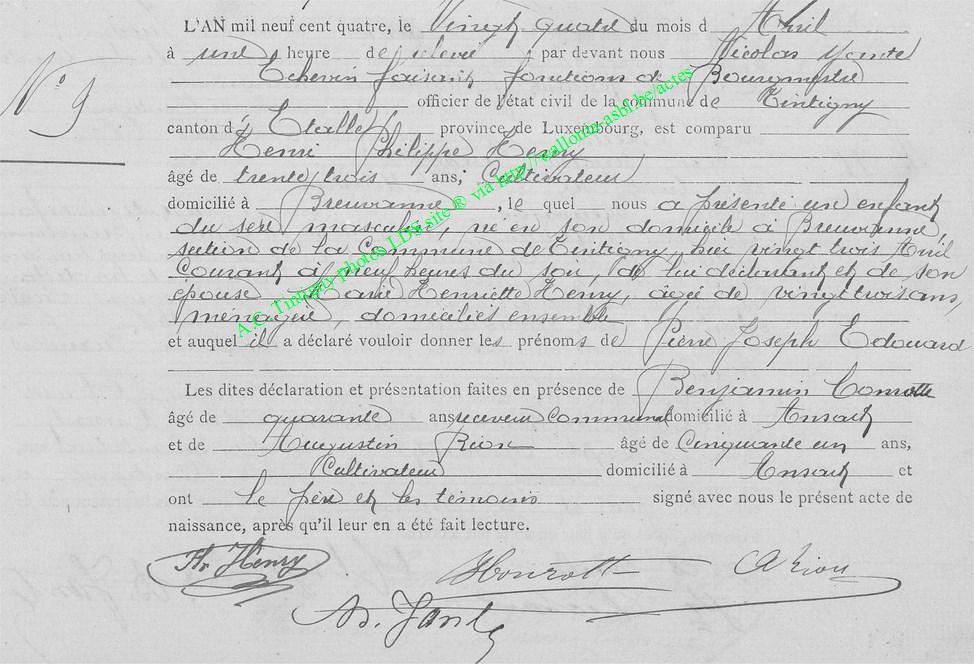 L'AN mil neuf cent quatre, le Vingt quatre du mois d Avril
à une heure de relevée par devant nous Nicolas
Echevin faisant fonctions de Bourgmestre
N° 9
officier de l'état civil de la commune de Tintigny
canton d' Etalle province de Luxembourg, est comparu
Henri Philippe Henry
âgé de trente trois ans, Cultivateur
domicilié à Breuvanne , le quel nous a présenté un enfant
du sexe masculin, né en son domicile à Breuvanne,
section de la Commune de Tintigny, hier vingt trois Avril
Courant à neuf heures du soir, de lui déclarant et de son
épouse Marie Henriette Henry, âgée de vingt trois ans,
ménagère, domiciliés ensemble
et auquel il a déclaré vouloir donner les prénoms de Pierre Joseph Edouard
Les dites déclaration et présentation faites en présence de Benjamin
âgé de quarante ans receveur Communal domicilié à Ansart
et de Augustin Rion âgé de Cinquante un ans,
Cultivateur domicilié à Ansart et
ont le père et les témoins signé avec nous le présent acte de
naissance, après qu'il leur en a été fait lecture.
Ph Henry
A Rion
A.C. Tintigny photos LDS site ® via http://wallonia.asbl.be/actes